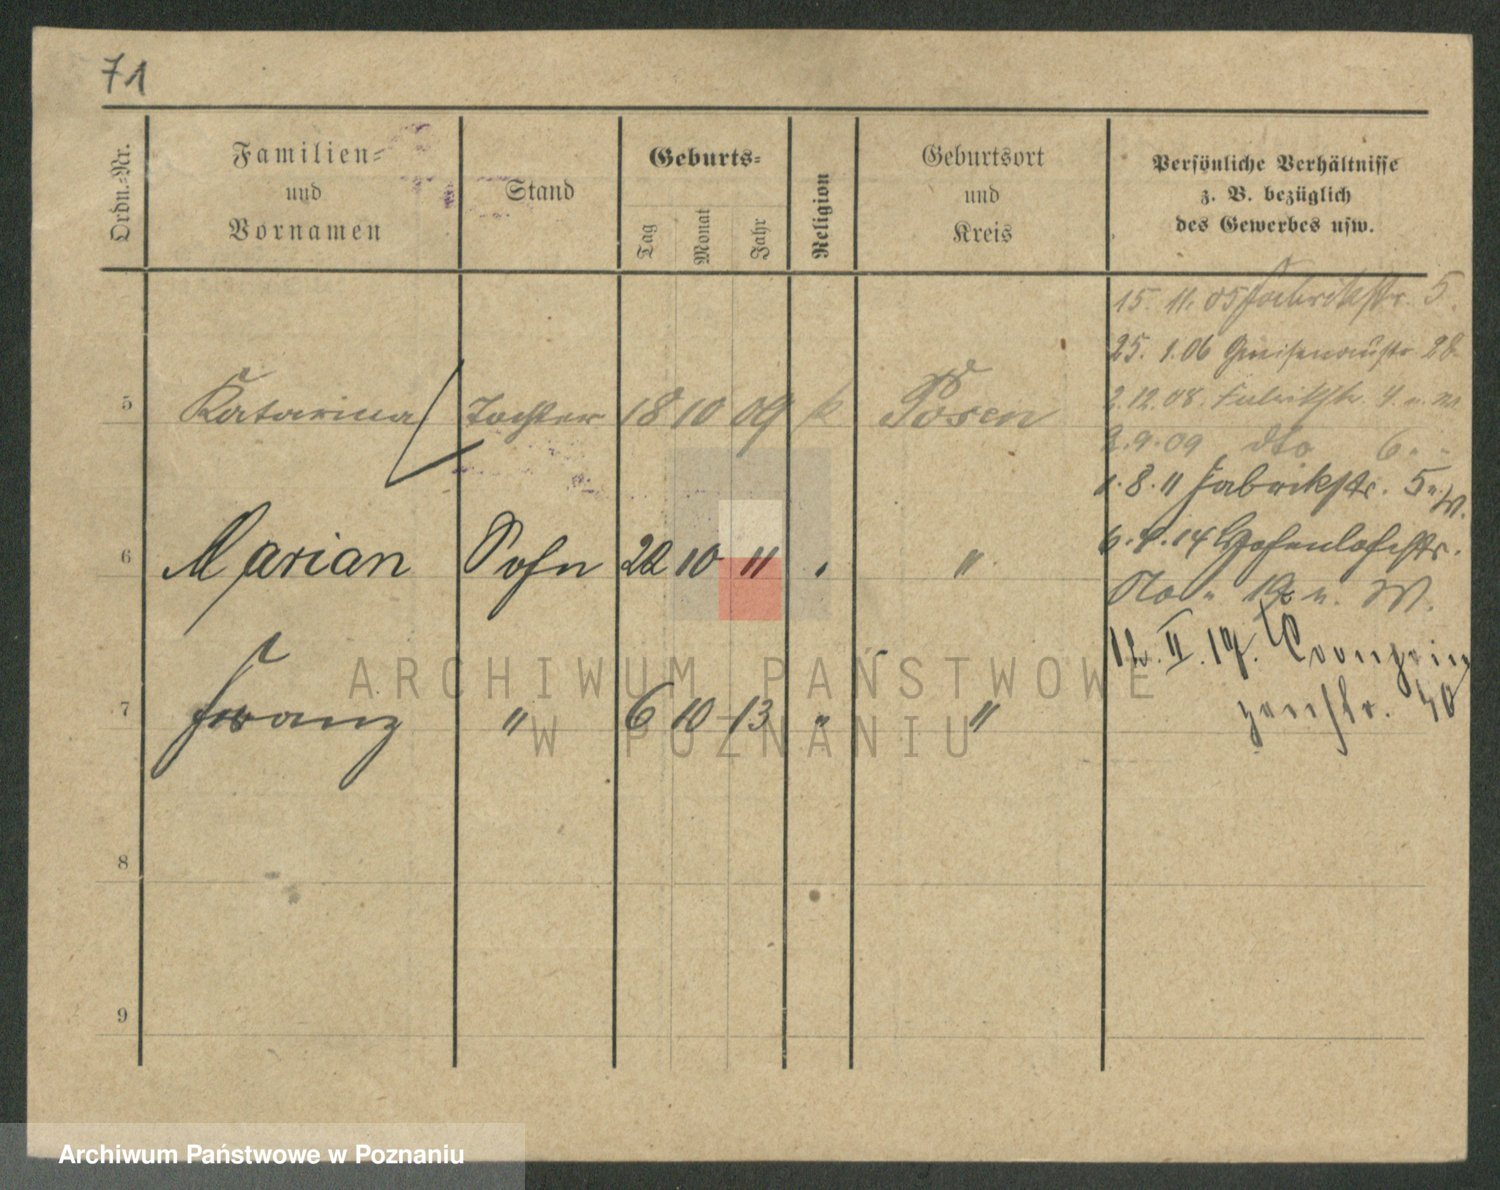 71
Ordn.-Nr.
Familien-
und
Vornamen
Stand
Geburts-
Tag
Monat
Jahr
Religion
Geburtsort
und
Kreis
Persönliche Verhältnisse
z. B. bezüglich
des Gewerbes usw.
15. 11. 05 Fabrikstr. 5.
25. 1. 06 Gneisenaustr. 28
2. 12. 08. Fabrikstr. 4
5 Katarina Tochter 18 10 09 k Posen
2. 9. 09 dto 6
1. 8. 11 Fabrikstr. 5
6 Marian Sohn 22 10 11 " "
14 Hohenlohestr.
12. II. 19.
7 Franz " 6 10 13 " "
40
ARCHIWUM PAŃSTWOWE
W POZNANIU
8
9
Archiwum Państwowe w Poznaniu